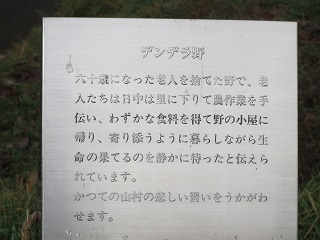 デンデラ野
六十歳になった老人を捨てた野で、老
人たちは日中は里に下りて農作業を手
伝い、わずかな食料を得て野の小屋に
帰り、寄り添うように暮らしながら生
命の果てるのを静かに待ったと伝えら
れています。
かつての山村の悲しい習いをうかがわ
せます。